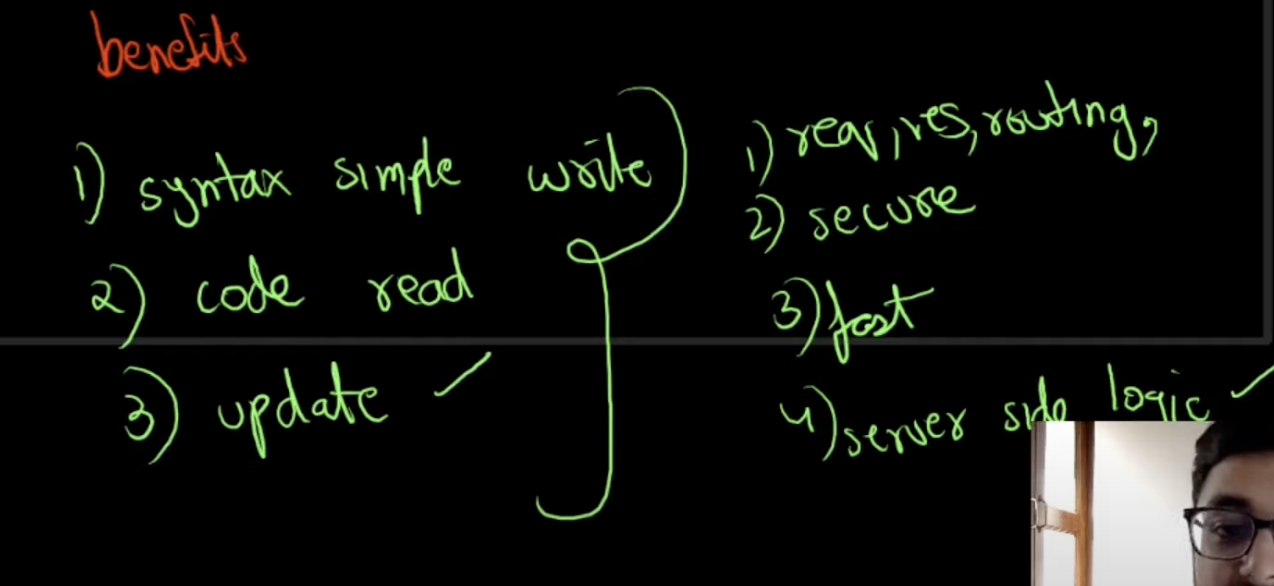 benefits
1) syntax simple write
2) code read
3) update
1) req, res, routing,
2) secure
3) fast
4) server side logic